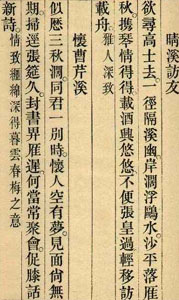 晴溪訪友
欲尋高士去一徑隔溪幽岸濶浮鷗水沙平落雁
秋攜琴情得得載酒興悠悠不便張皇過輕移訪
載舟雅人深致
懷曹芹溪
似歴三秋濶同君一別時懷人空有夢見面尚無
期掃逕張筵久封書畀雁遲何當常聚會促膝話
新詩情致纏綿深得暮雲春梅之意